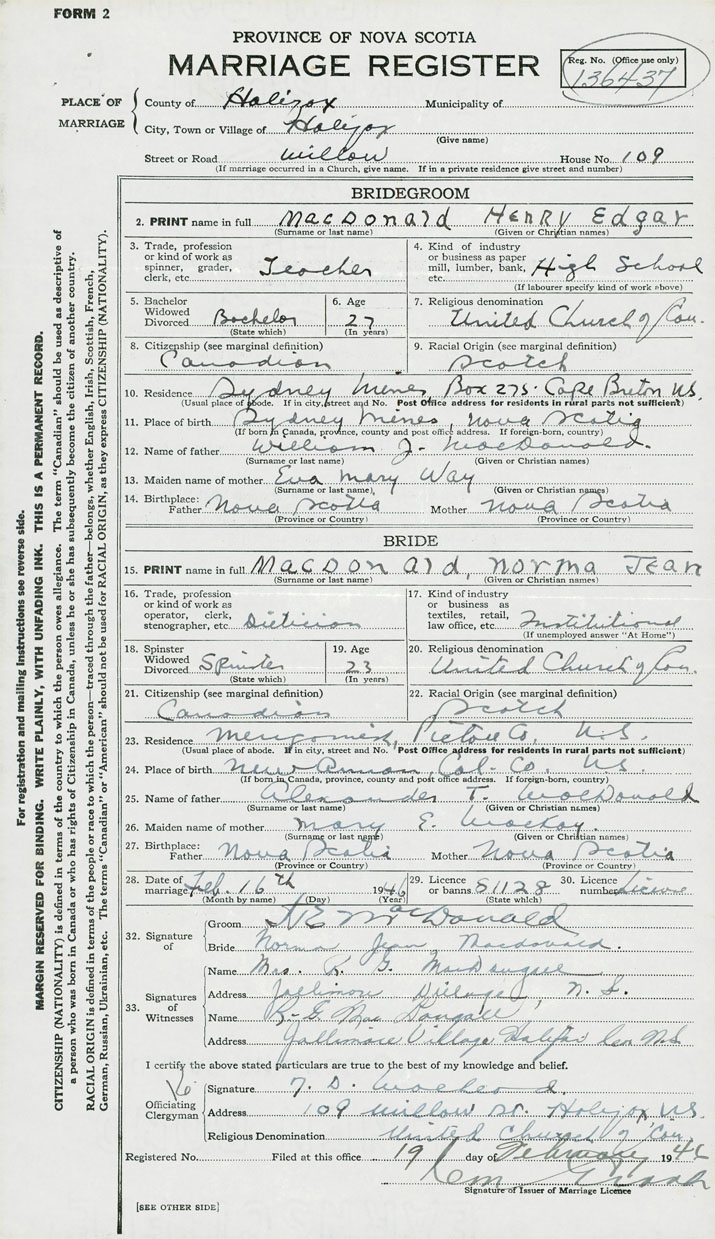 FORM 2
PROVINCE OF NOVA SCOTIA
MARRIAGE REGISTER
Reg. No. (Office use only)
136437
PLACE OF MARRIAGE
County of Halifax Municipality of
City, Town or Village of Halifax
(Give name)
Street or Road Willow House No. 109
(If marriage occurred in a Church, give name. If in a private residence give street and number)
BRIDEGROOM
2. PRINT name in full MacDonald Henry Edgar
(Surname or last name) (Given or Christian names)
3. Trade, profession or kind of work as spinner, grader, clerk, etc. Teacher
4. Kind of industry or business as paper mill, lumber, bank, etc. High School
(If labourer specify kind of work above)
5. Bachelor Widowed Divorced Bachelor
(State which)
6. Age 27
(In years)
7. Religious denomination United Church of Can.
8. Citizenship (see marginal definition) Canadian
9. Racial Origin (see marginal definition) Scotch
10. Residence Sydney Mines Box 275. Cape Breton N.S.
(Usual place of abode. If in city, street and No. Post Office address for residents in rural parts not sufficient)
11. Place of birth Sydney Mines, Nova Scotia
(If born in Canada, province, county and post office address. If foreign-born, country)
12. Name of father William J. MacDonald.
(Surname or last name) (Given or Christian names)
13. Maiden name of mother Eva Mary Way
(Surname or last name) (Given or Christian names)
14. Birthplace: Father Nova Scotia Mother Nova Scotia
(Province or Country) (Province or Country)
BRIDE
15. PRINT name in full MacDonald, Norma Jean
(Surname or last name) (Given or Christian names)
16. Trade, profession or kind of work as operator, clerk, stenographer, etc. Dietician
17. Kind of industry or business as textiles, retail, law office, etc. Institutional
(If unemployed answer "At Home")
18. Spinster Widowed Divorced Spinster
(State which)
19. Age 23
(In years)
20. Religious denomination United Church of Can.
21. Citizenship (see marginal definition) Canadian
22. Racial Origin (see marginal definition) Scotch
23. Residence Merigomish, Pictou Co. N.S.
(Usual place of abode. If in city, street and No. Post Office address for residents in rural parts not sufficient)
24. Place of birth New Annan, Col. Co. N.S.
(If born in Canada, province, county and post office address. If foreign-born, country)
25. Name of father Alexander T. MacDonald
(Surname or last name) (Given or Christian names)
26. Maiden name of mother Mary E. MacKay.
(Surname or last name) (Given or Christian names)
27. Birthplace: Father Nova Scotia Mother Nova Scotia
(Province or Country) (Province or Country)
28. Date of marriage Feb. 16th 1946
(Month by name) (Day) (Year)
29. Licence or banns S1128
(State which)
30. Licence number License
32. Signature of
Groom H E MacDonald
Bride Norma Jean Macdonald.
33. Signatures of Witnesses
Name Mrs. R. G. MacDougall
Address Jollimore Village, N.S.
Name R. G. MacDougall
Address Jollimore Village Halifax Co. N.S.
I certify the above stated particulars are true to the best of my knowledge and belief.
Officiating Clergyman
Signature
Address 109 Willow St. Halifax N.S.
Religious Denomination United Church of Can.
Registered No. Filed at this office 19 day of February 1946
Signature of Issuer of Marriage Licence
[SEE OTHER SIDE]
For registration and mailing instructions see reverse side.
MARGIN RESERVED FOR BINDING. WRITE PLAINLY, WITH UNFADING INK. THIS IS A PERMANENT RECORD.
CITIZENSHIP (NATIONALITY) is defined in terms of the country to which the person owes allegiance. The term "Canadian" should be used as descriptive of
a person who was born in Canada or who has rights of Citizenship in Canada, unless he or she has subsequently become the citizen of another country.
RACIAL ORIGIN is defined in terms of the people or race to which the person—traced through the father—belongs, whether English, Irish, Scottish, French,
German, Russian, Ukrainian, etc. The terms "Canadian" or "American" should not be used for RACIAL ORIGIN, as they express CITIZENSHIP (NATIONALITY).